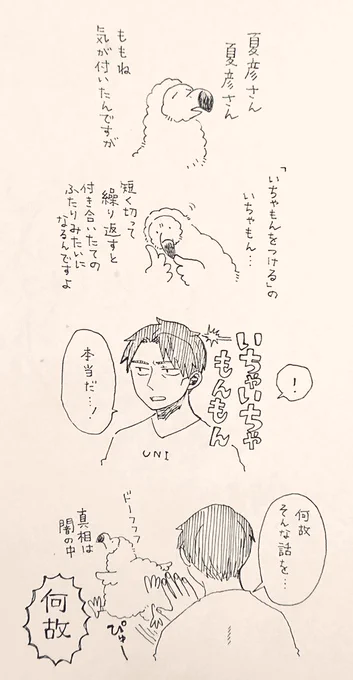 夏彦さん
夏彦さん
ももね
気が付いたんですが
「いちゃもんをつける」の
いちゃもん…
短く切って
繰り返すと
付き合いたての
ふたりみたいに
なるんですよ
！
いちゃいちゃ
もんもん
本当だ…！
UNI
何故
そんな話を…
ドーフフフ
真相は
闇の中
ぴゅー
何故